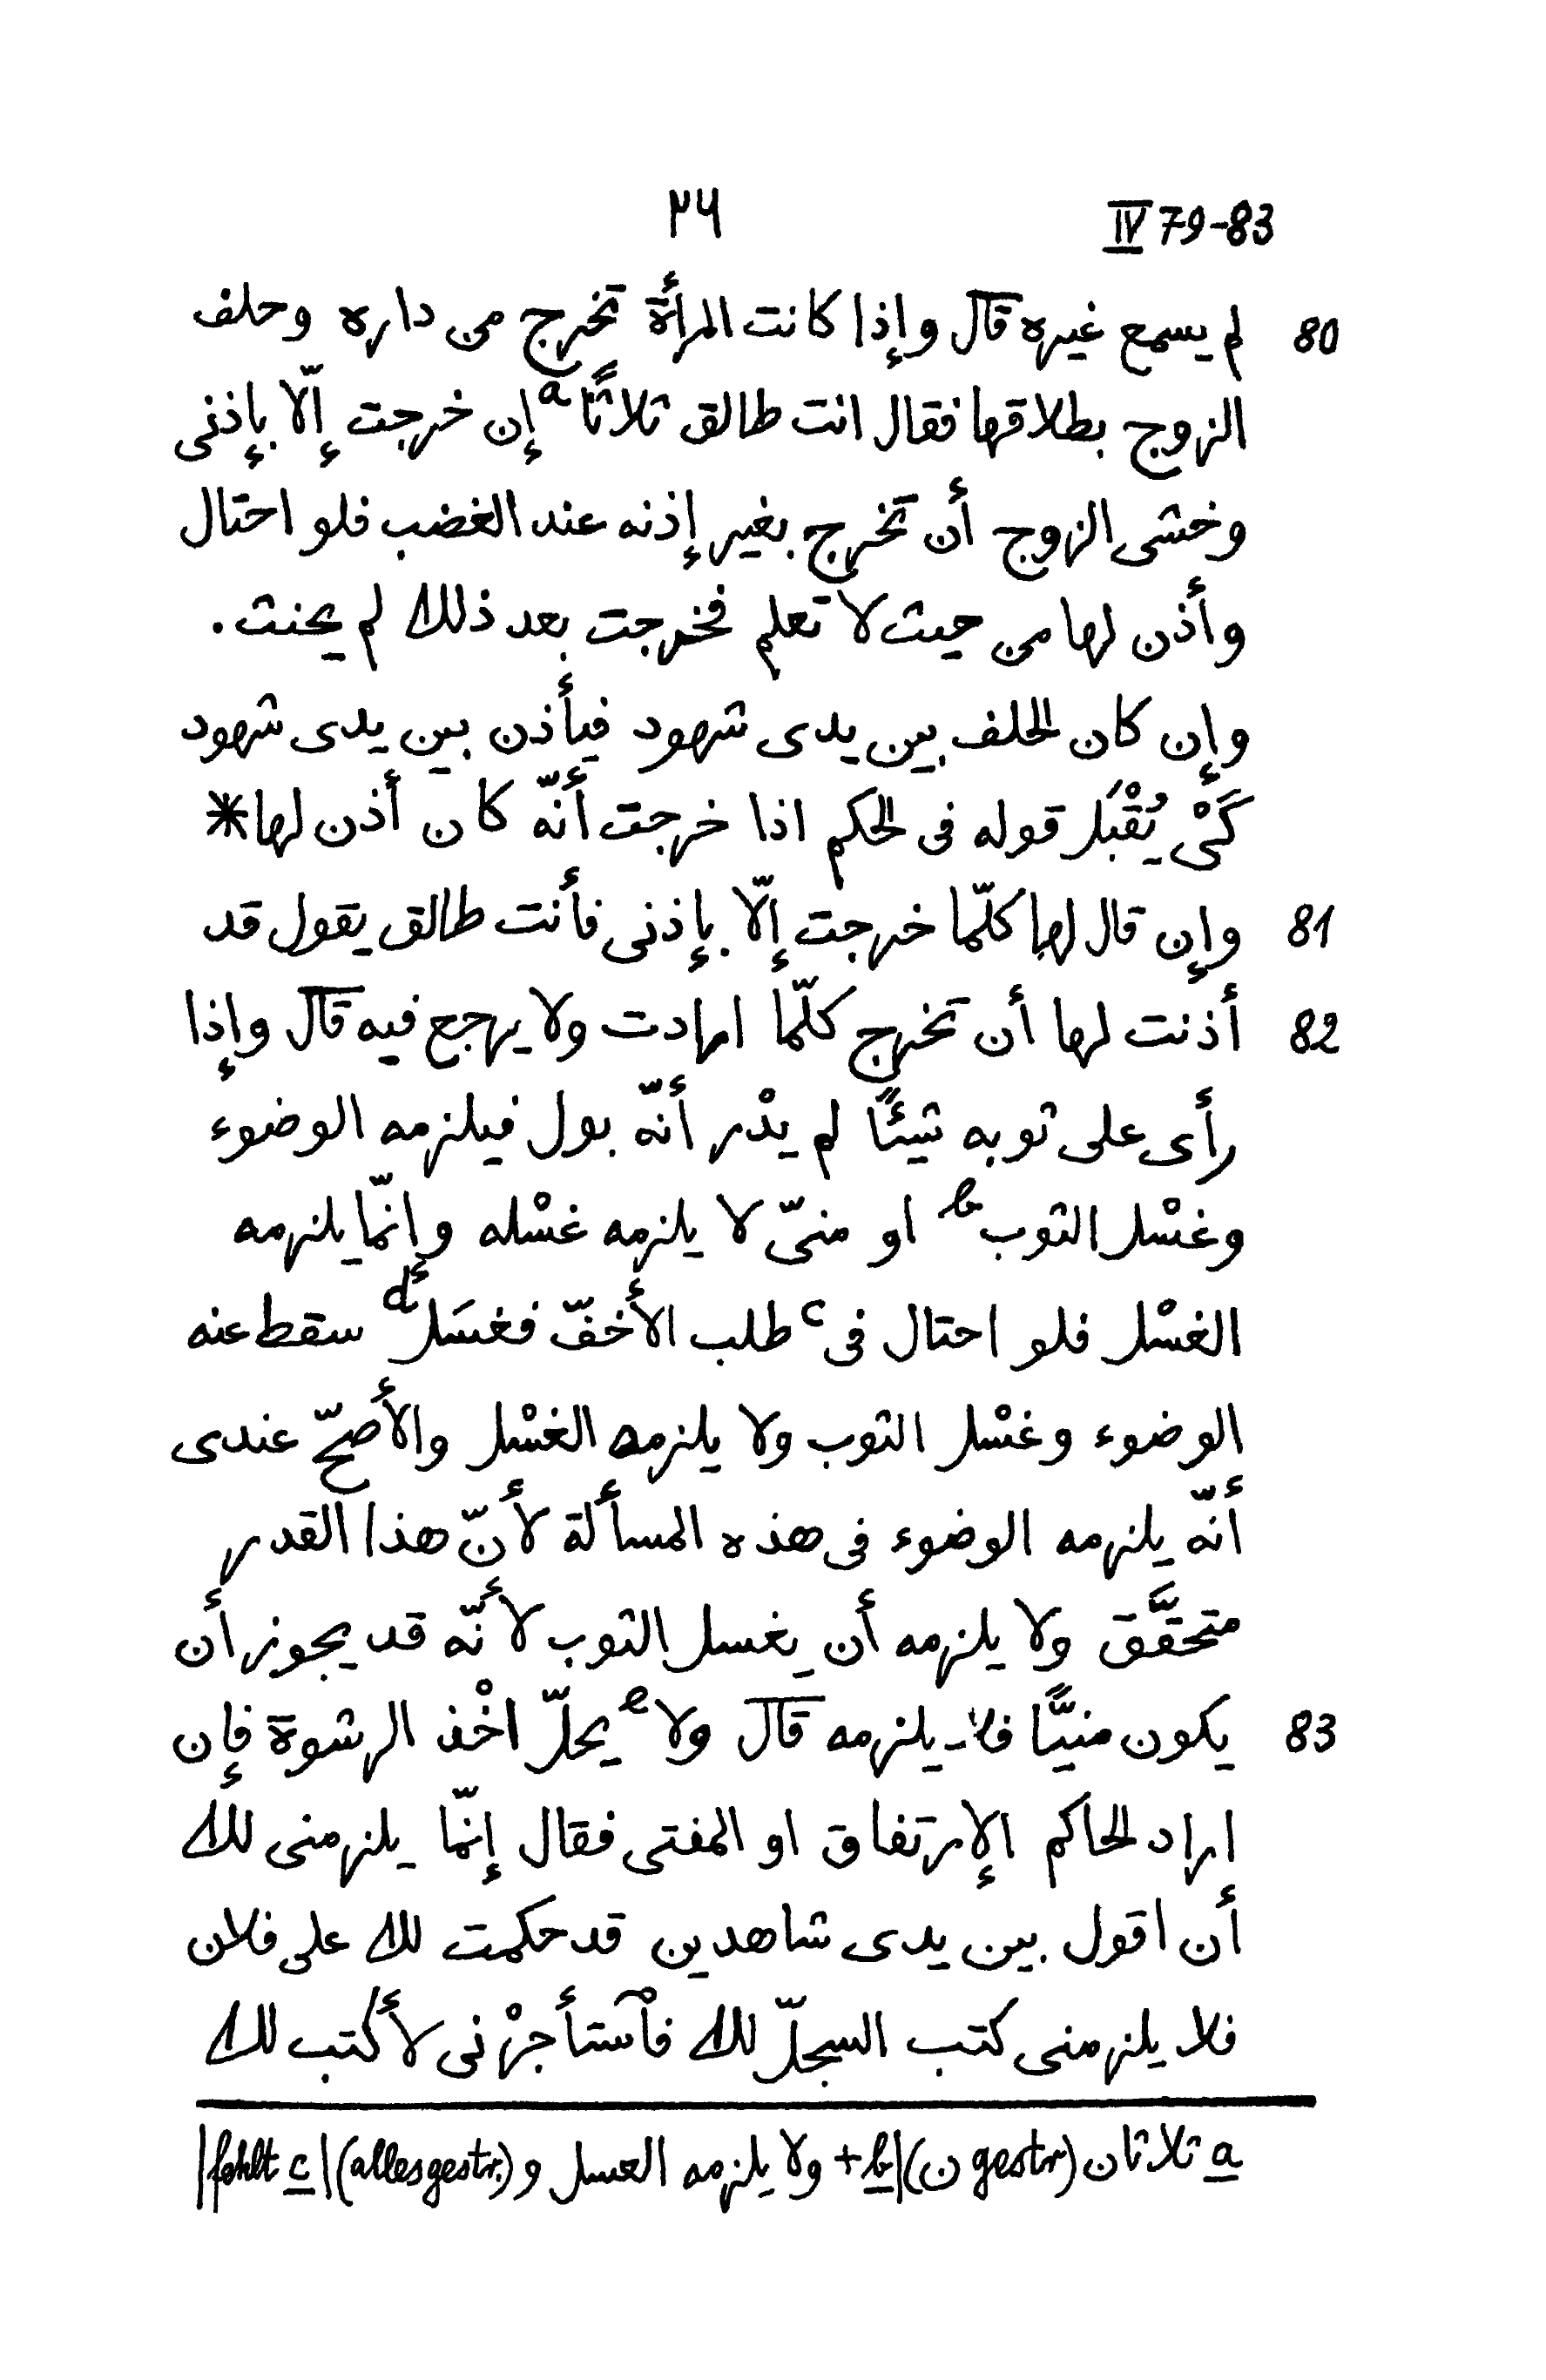 IV 79-83
٢٦
80 لم يسمع غيره قال وإذا كانت المرأة تخرج من داره وحلف
الزوج بطلاقها فقال انت طالق ثلاثًا a إن خرجت إلّا بإذنى
وخشى الزوج أن تخرج بغير إذنه عند الغضب فلو احتال
وأذن لها من حيث لا تعلم فخرجت بعد ذلك لم يحنث .
وإن كان الحلف بين يدى شهود فيأذن بين يدى شهود
كَىْ يُقْبَل قوله فى الحكم اذا خرجت أنّه كان أذن لها *
81 وإن قال لها كلّما خرجت إلّا بإذنى فأنت طالق يقول قد
82 أذنت لها أن تخرج كلّما ارادت ولا يرجع فيه قال وإذا
رأى على ثوبه شيئًا لم يدْر أنّه بول فيلزمه الوضوء
وغسْل الثوب b او منىّ لا يلزمه غسْله وإنّما يلزمه
الغسْل فلو احتال فى c طلب الأخفّ فغسَل d سقط عنه
الوضوء وغسْل الثوب ولا يلزمه الغسْل والأصحّ عندى
أنّه يلزمه الوضوء فى هذه المسألة لأنّ هذا القدر
متحقَّق ولا يلزمه أن يغسل الثوب لأنّه قد يجوز أن
83 يكون منيًّا فلا يلزمه قال ولا e يحلّ اخْذ الرشوة فإن
اراد الحاكم الإرتفاق او المفتى فقال إنّما يلزمنى لك
أن اقول بين يدى شاهدين قد حكمت لك على فلان
فلا يلزمنى كتب السجلّ لك فٱستأجرْنى لأكتب لك
a ثلاثان (ن gestr) | b + ولا يلزمه العسل و (alles gestr.) | c fehlt |